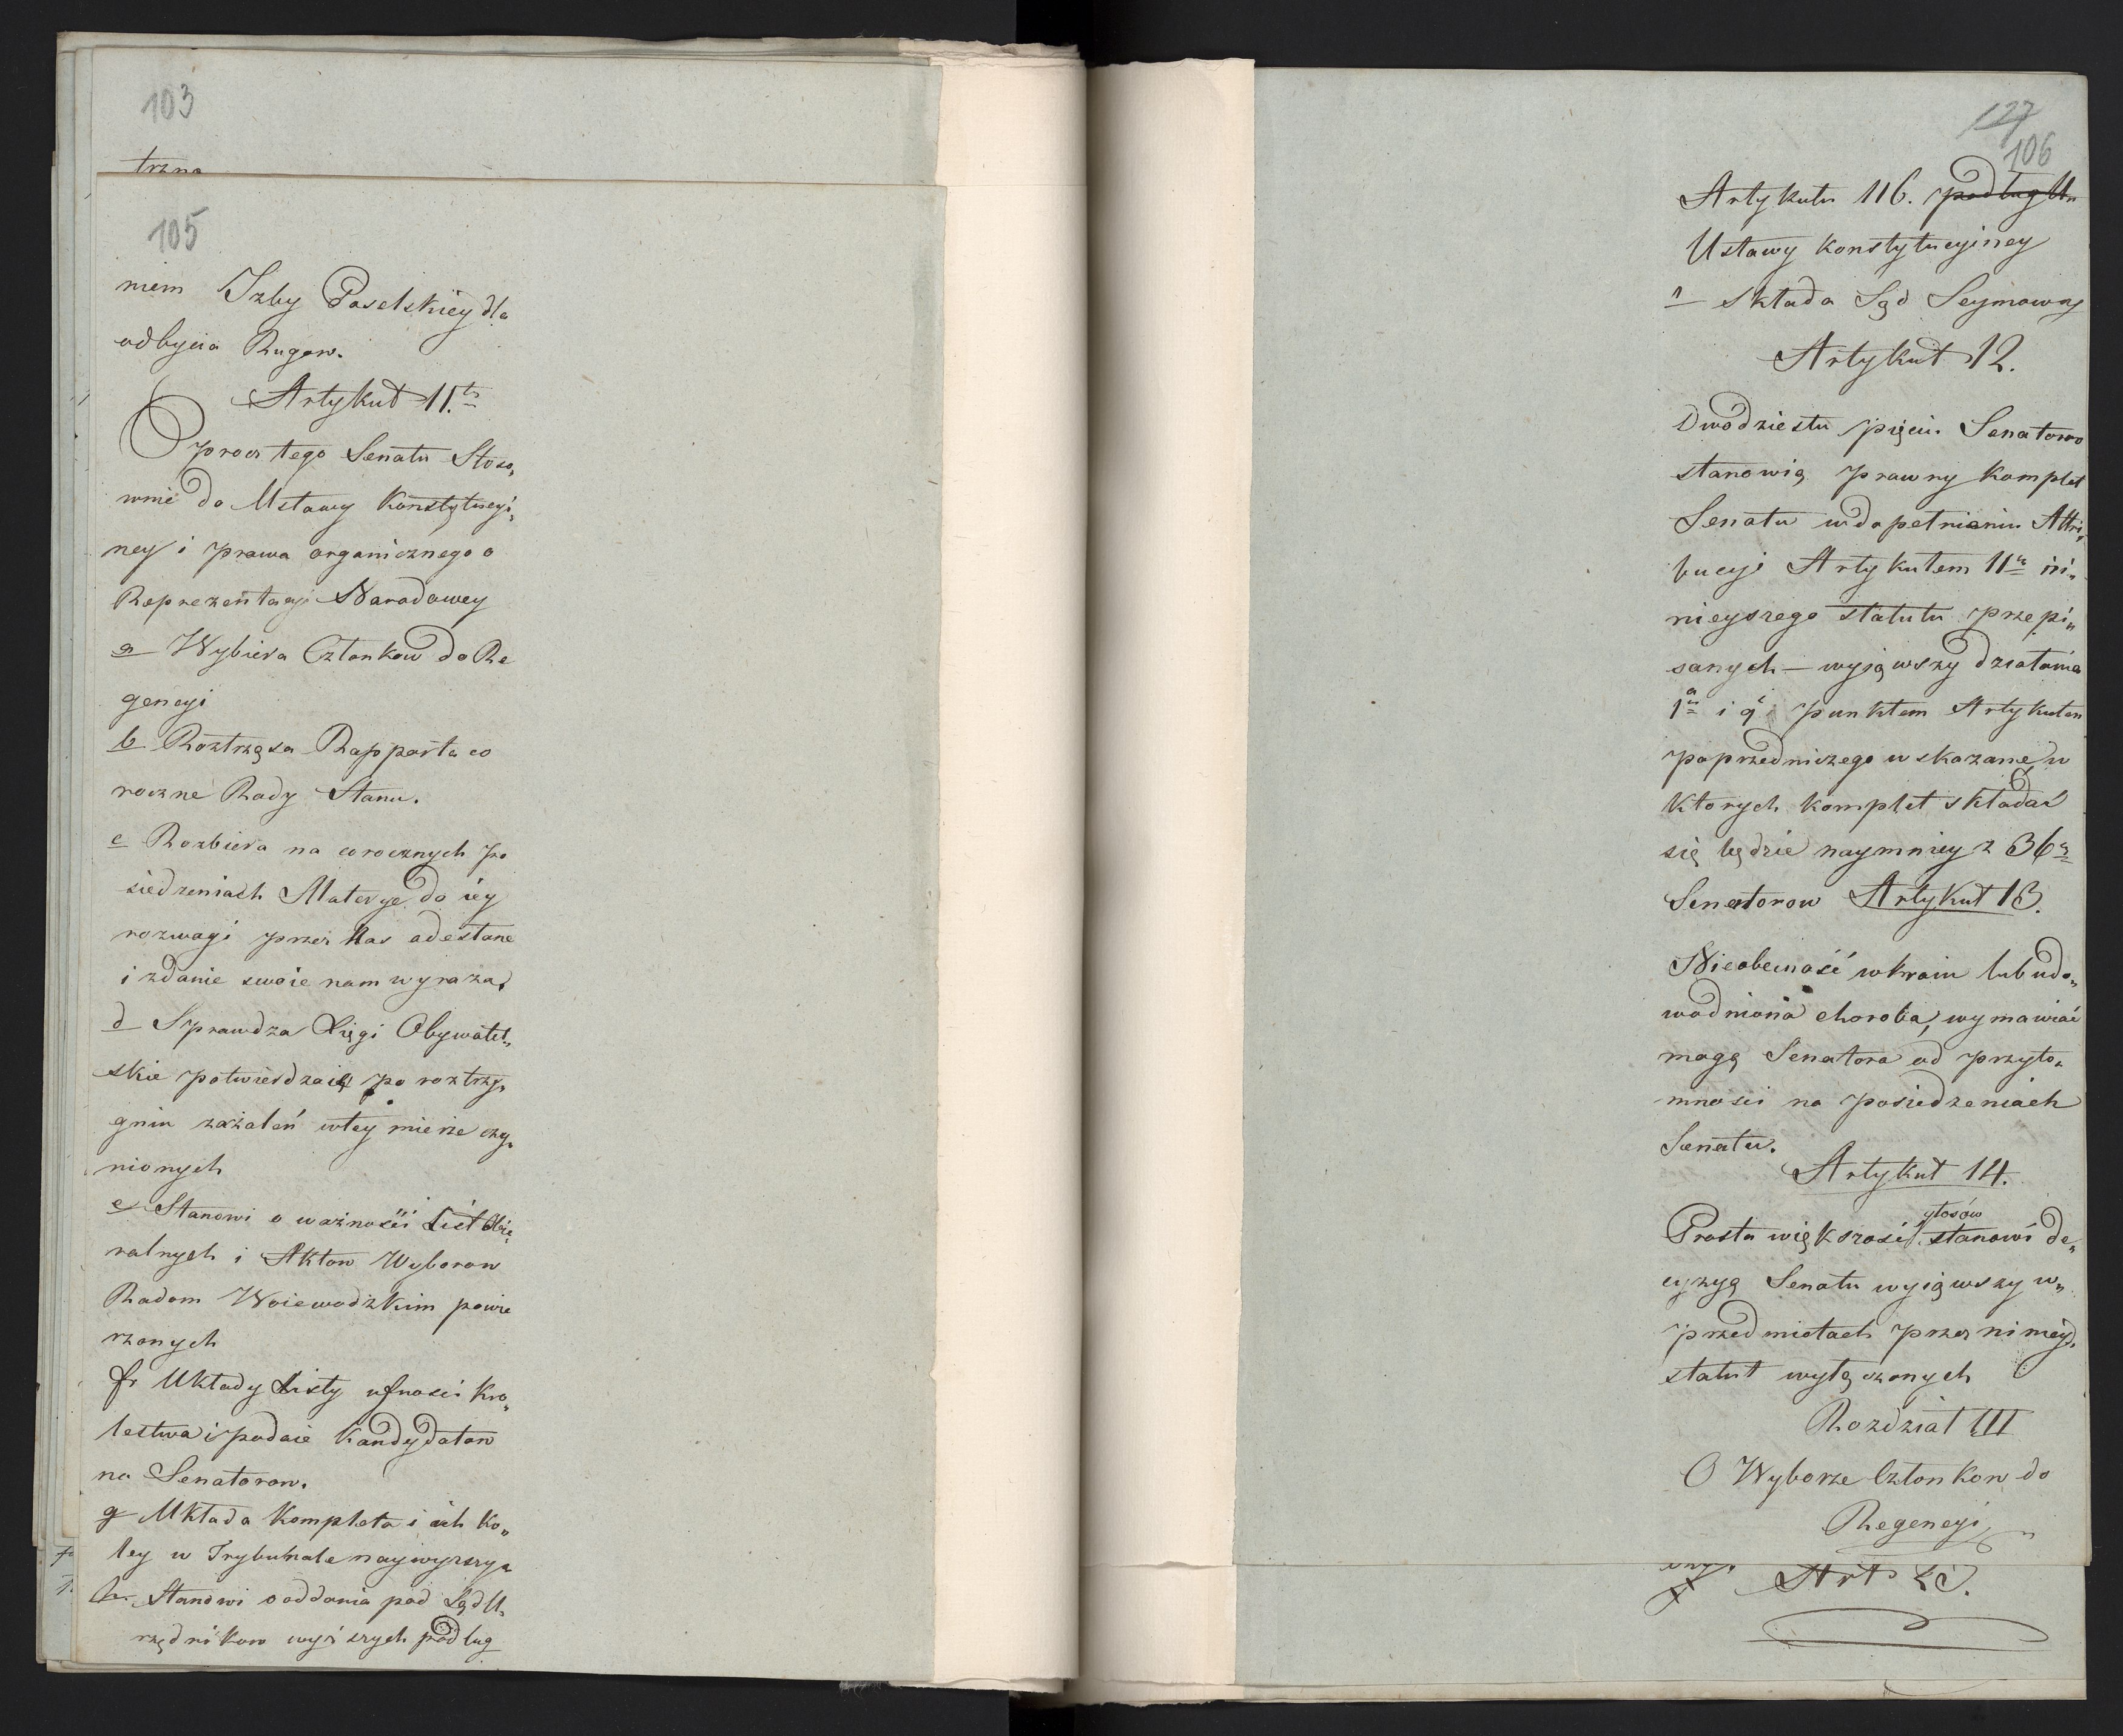 103
trzna
105
niem Izby Poselskiey dla
odbycia Rugow.
Artykuł 11.ty
Oprocz tego Senatu Stoso„
wnie do Ustawy Konstytucyi„
ney i prawa organicznego o
Reprezentacyi Narodowey
a Wybiera Członkow do Re
gencyi
b Roztrząsa Rapporta co
roczne Rady Stanu.
c Rozbiera na corocznych po
siedzeniach Materye do iey
rozwagi przez Nas odesłane
i zdanie swoie nam wyraza.
d Sprawdza Xięgi Obywatel„
skie potwierdzaią po roztrzy„
gniu zażaleń wtey mierze czy„
nionych
e Stanowi o ważności List Obie„
ralnych i Aktow Wyborow
Radom Woiewodzkim powie
rzonych
f Układy Listy ufności Kro„
lestwa i podaie Kandydatow
na Senatorow.
g Układa Kompleta i ich Ko„
ley w Trybunale naywyzszym
h Stanowi o oddania pod Sąd U„
rzędnikow wyższych podług
127
106
Artykułu 116. podług Us
Ustawy Konstytucyiney
i Składa Sąd Seymowy
Artykuł 12.
Dwadziestu pięciu Senatorow
stanowią prawny Komplet
Senatu w dopełnianiu Attri„
bucyi Artykułem 11m ni„
nieyszego Statutu przepi„
sanych — wyiąwszy działania
1m i g punktem Artykułu
poprzedniczego wskazane, w
Ktorych komplet składać
się będzie naymniey z 36u
Senatorow Artykuł 13.
Nieobecność wkraiu lub udo„
wodniona choroba, wymawiać
mogą Senatora od przyto„
mności na posiedzeniach
Senatu.
Artykuł 14.
głosów
Prosta większość stanowi de„
cyzyą Senatu wyiąwszy w„
przedmiotach przez ninieyś.
statut wyłączonych
Rozdział III
O Wyborze Członkow do
Regencyi
Art